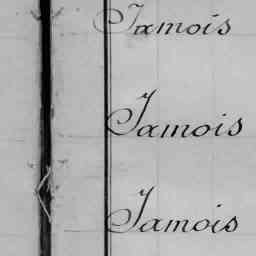 Jamois
Jamois
Jamois